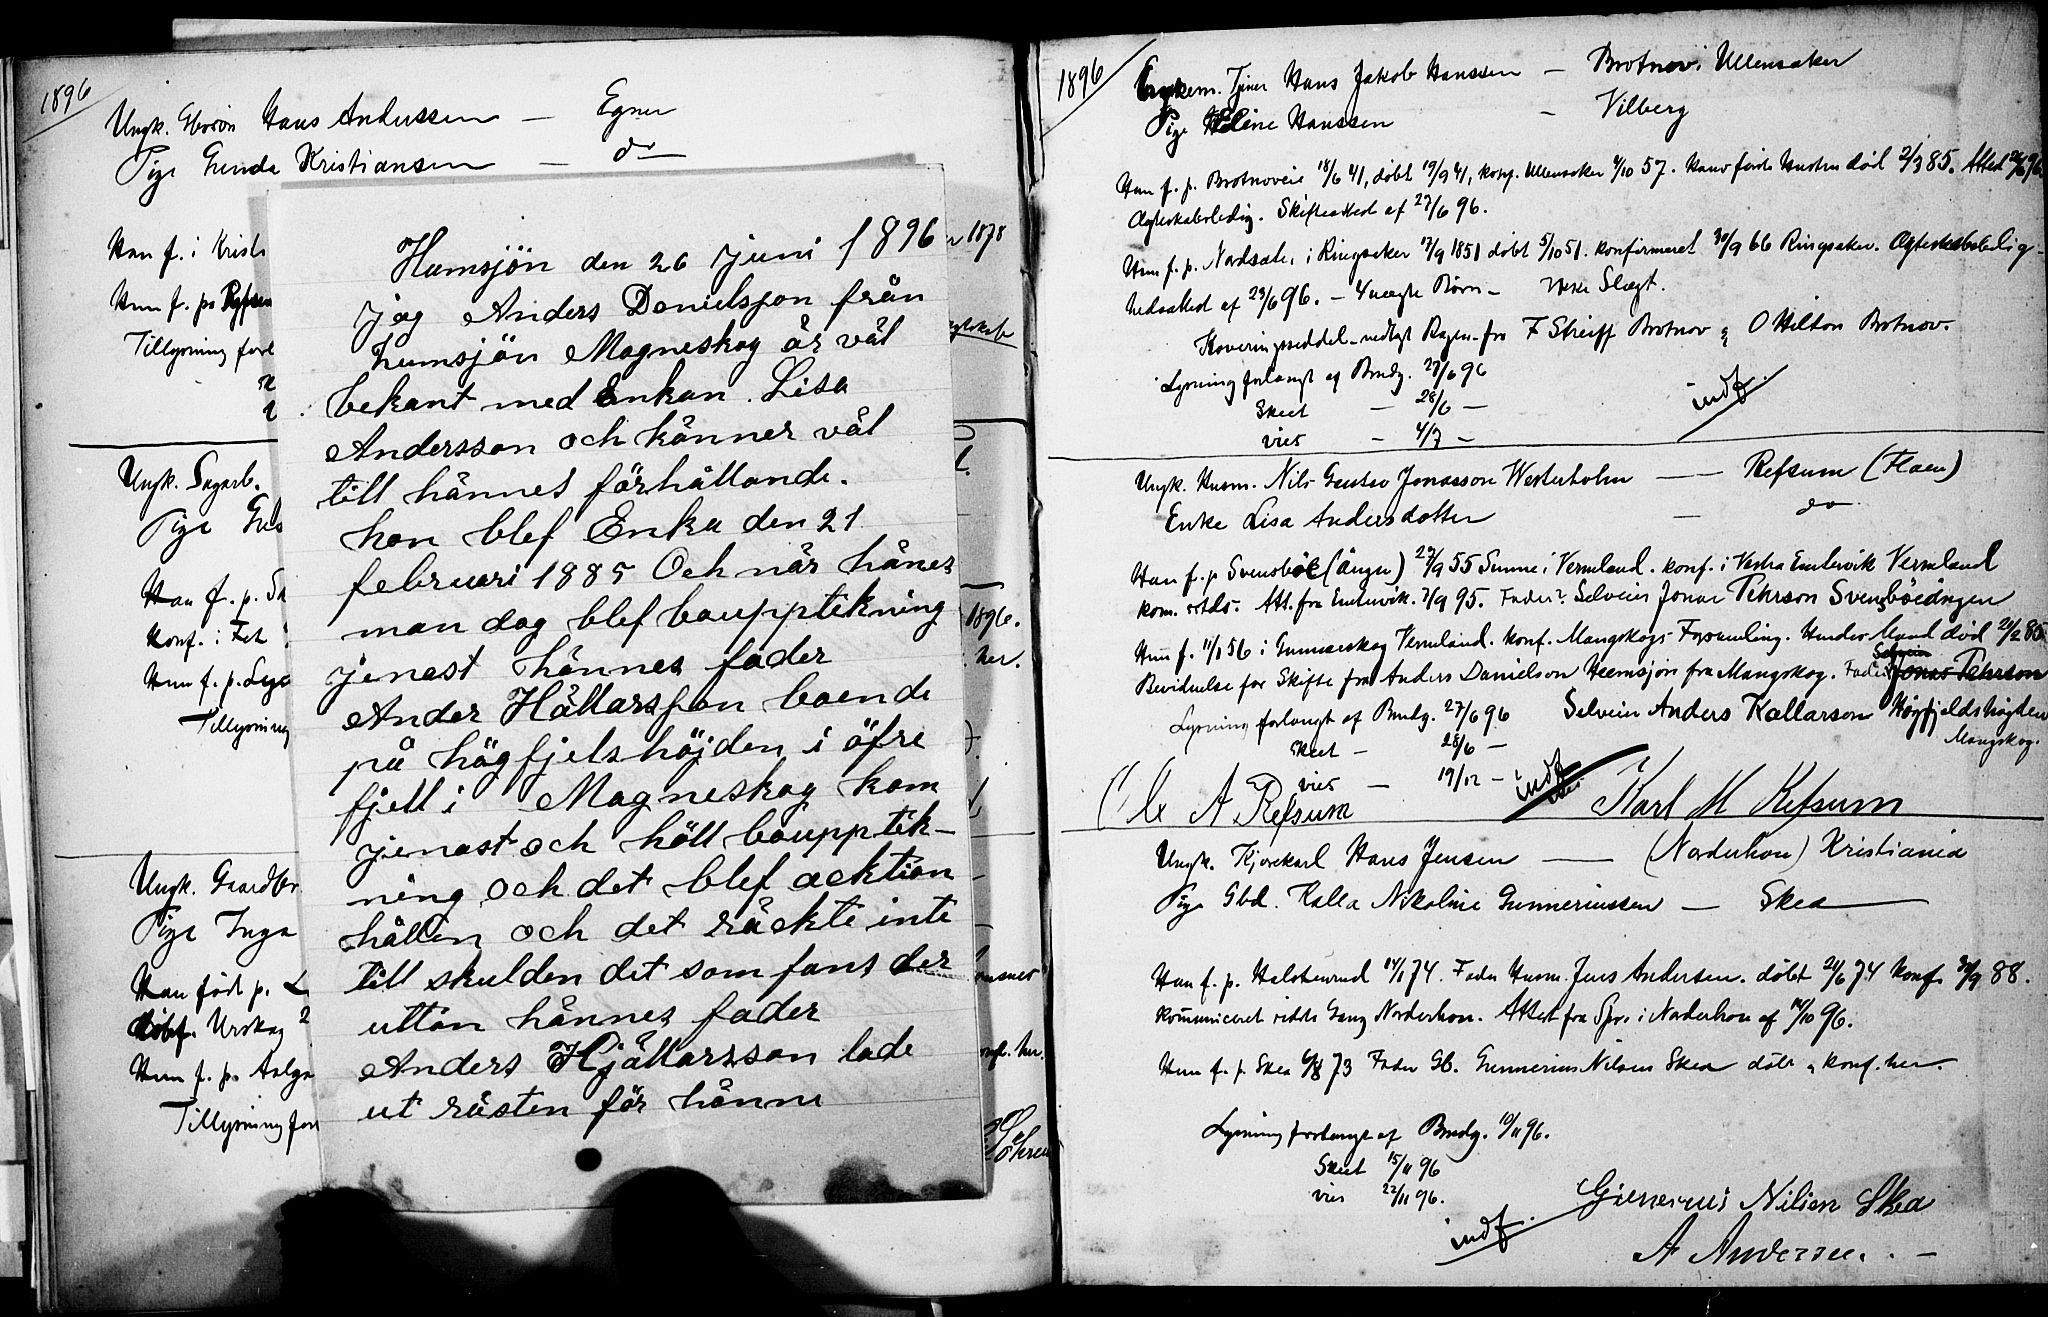 1896
Ungk. Gbrsøn Hans Anderssen — Egner
Pige Gunda Kristiansen — do
Han f. i Krist
Hun f. paa
Tillysning forl
Ungk. Sagarb.
Pige
Han f. p.
konf. i Fet
Hun f. p.
Tillysning
Ungk. Gaardbr
Pige Inga
Han født p.
døbt Urskog
Hun f. p.
Tillysning for
Humsjön den 26 juni 1896
jag Anders Danielsson från
humsjön Magneskog är väl
bekant med Enkan. Lisa
Andersson och känner väl
till hännes förhållande.
hon blef Enka den 21
februari 1885 Och när hänes
man dog blef bouppteknin̄g
jenast hännes fader
Ander Hällarsson boende
på högfjelshöjden i öfre
fjell i Magneskog kom
jenast och höll boupptek-
ning och det blef acktion
hållen och det räckte inte
till skulden det som fans der
uttan hännes fader
Anders Hjällarsson lade
ut rästen för hänne
1878
1896.
her.
her.
1896
Enkem. Tjener Hans Jakob Hanssen — Brotnov i Ullensaker
Pige Heline Hanssen — Vilberg
Han f. p. Brotnoveie 18/6 41, døbt 19/9 41, konf. Ullensaker 4/10 57. Hans første Hustru død 2/3 85. Attest 96.
Ægteskabsledig. Skifteattest af 27/6 96.
Hun f. p. Nordsæter i Ringsaker 17/9 1851 døbt 5/10 51. konfirmeret 30/9 66 Ringsaker. Ægteskabsledig-
hedsattest af 23/6 96. — 4 uægte Børn — Ikke Slægt.
Kaveringsseddel vedlagt Bogen fra F Streiff Brotnov & O Hilton Brotnov.
Lysning forlangt af Brudg. 27/6 96
Skeet — 28/6 —
viet — 4/7 —
indf.
Ungk. Husm. Nils Gustav Jonasson Westerholm — Refsum (Flaen)
Enke Lisa Andersdotter — do
Han f. p. Svensböle (Ängen) 27/9 55 Sunne i Vermland. konf. i Vestra Emtervik Vermland
kom. sstds. Att. fra Emtervik. 7/9 95. Fader: Selveier Jonas Pehrson Svensböleängen
Hun f. 11/1 56 i Gunnarskog Vermland. konf. Mangskogs Forsamling. Hendes Mand død 21/2 85.
Bevidnelse for Skifte fra Anders Danielson Heemsjön fra Mangskog. Fader Selveier Jonas Pehrson
Lysning forlangt af Brudg. 27/6 96 Selveier Anders Kællarson Högfjeldshöjden
Mangskog.
Skeet — 28/6 —
viet — 19/12 —
indf
Ole A Refsum Karl M Refsum
Ungk. Kjørekarl Hans Jensen — (Norderhov) Kristiania
Pige Gbd. Kalla Nikoline Gunneriussen — Skea
Han f. p. Helotenrud 14/1 74. Fader Husm. Jens Andersen. døbt 21/6 74 konf. 30/9 88.
kommuniceret sidste Gang Norderhov. Attest fra Spr. i Norderhov af 14/10 96.
Hun f. p. Skea 6/8 73 Fader Gb. Gunnerius Nilsen Skea døbt & konf. her.
Lysning forlangt af Brudg. 10/11 96.
Skeet 15/11 96
viet 22/11 96.
indf.
Gunerius Nilsen Skea
A Andersen. —